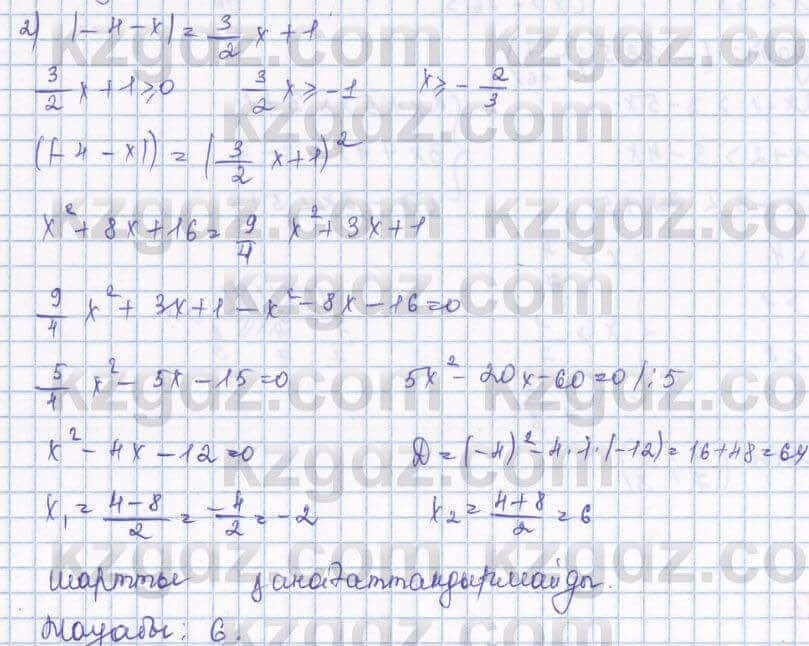 2) |-4-x| = 3/2 x + 1
3/2 x + 1 ≥ 0 3/2 x ≥ -1 x ≥ - 2/3
(|-4-x|) = (3/2 x + 1)²
x² + 8x + 16 = 9/4 x² + 3x + 1
9/4 x² + 3x + 1 - x² - 8x - 16 = 0
5/4 x² - 5x - 15 = 0 5x² - 20x - 60 = 0 /:5
x² - 4x - 12 = 0 D = (-4)² - 4·1·(-12) = 16 + 48 = 64
x₁ = 4-8/2 = -4/2 = -2 x₂ = 4+8/2 = 6
шартты қанағаттандырмайды.
Жауабы: 6.
kzgdz.com